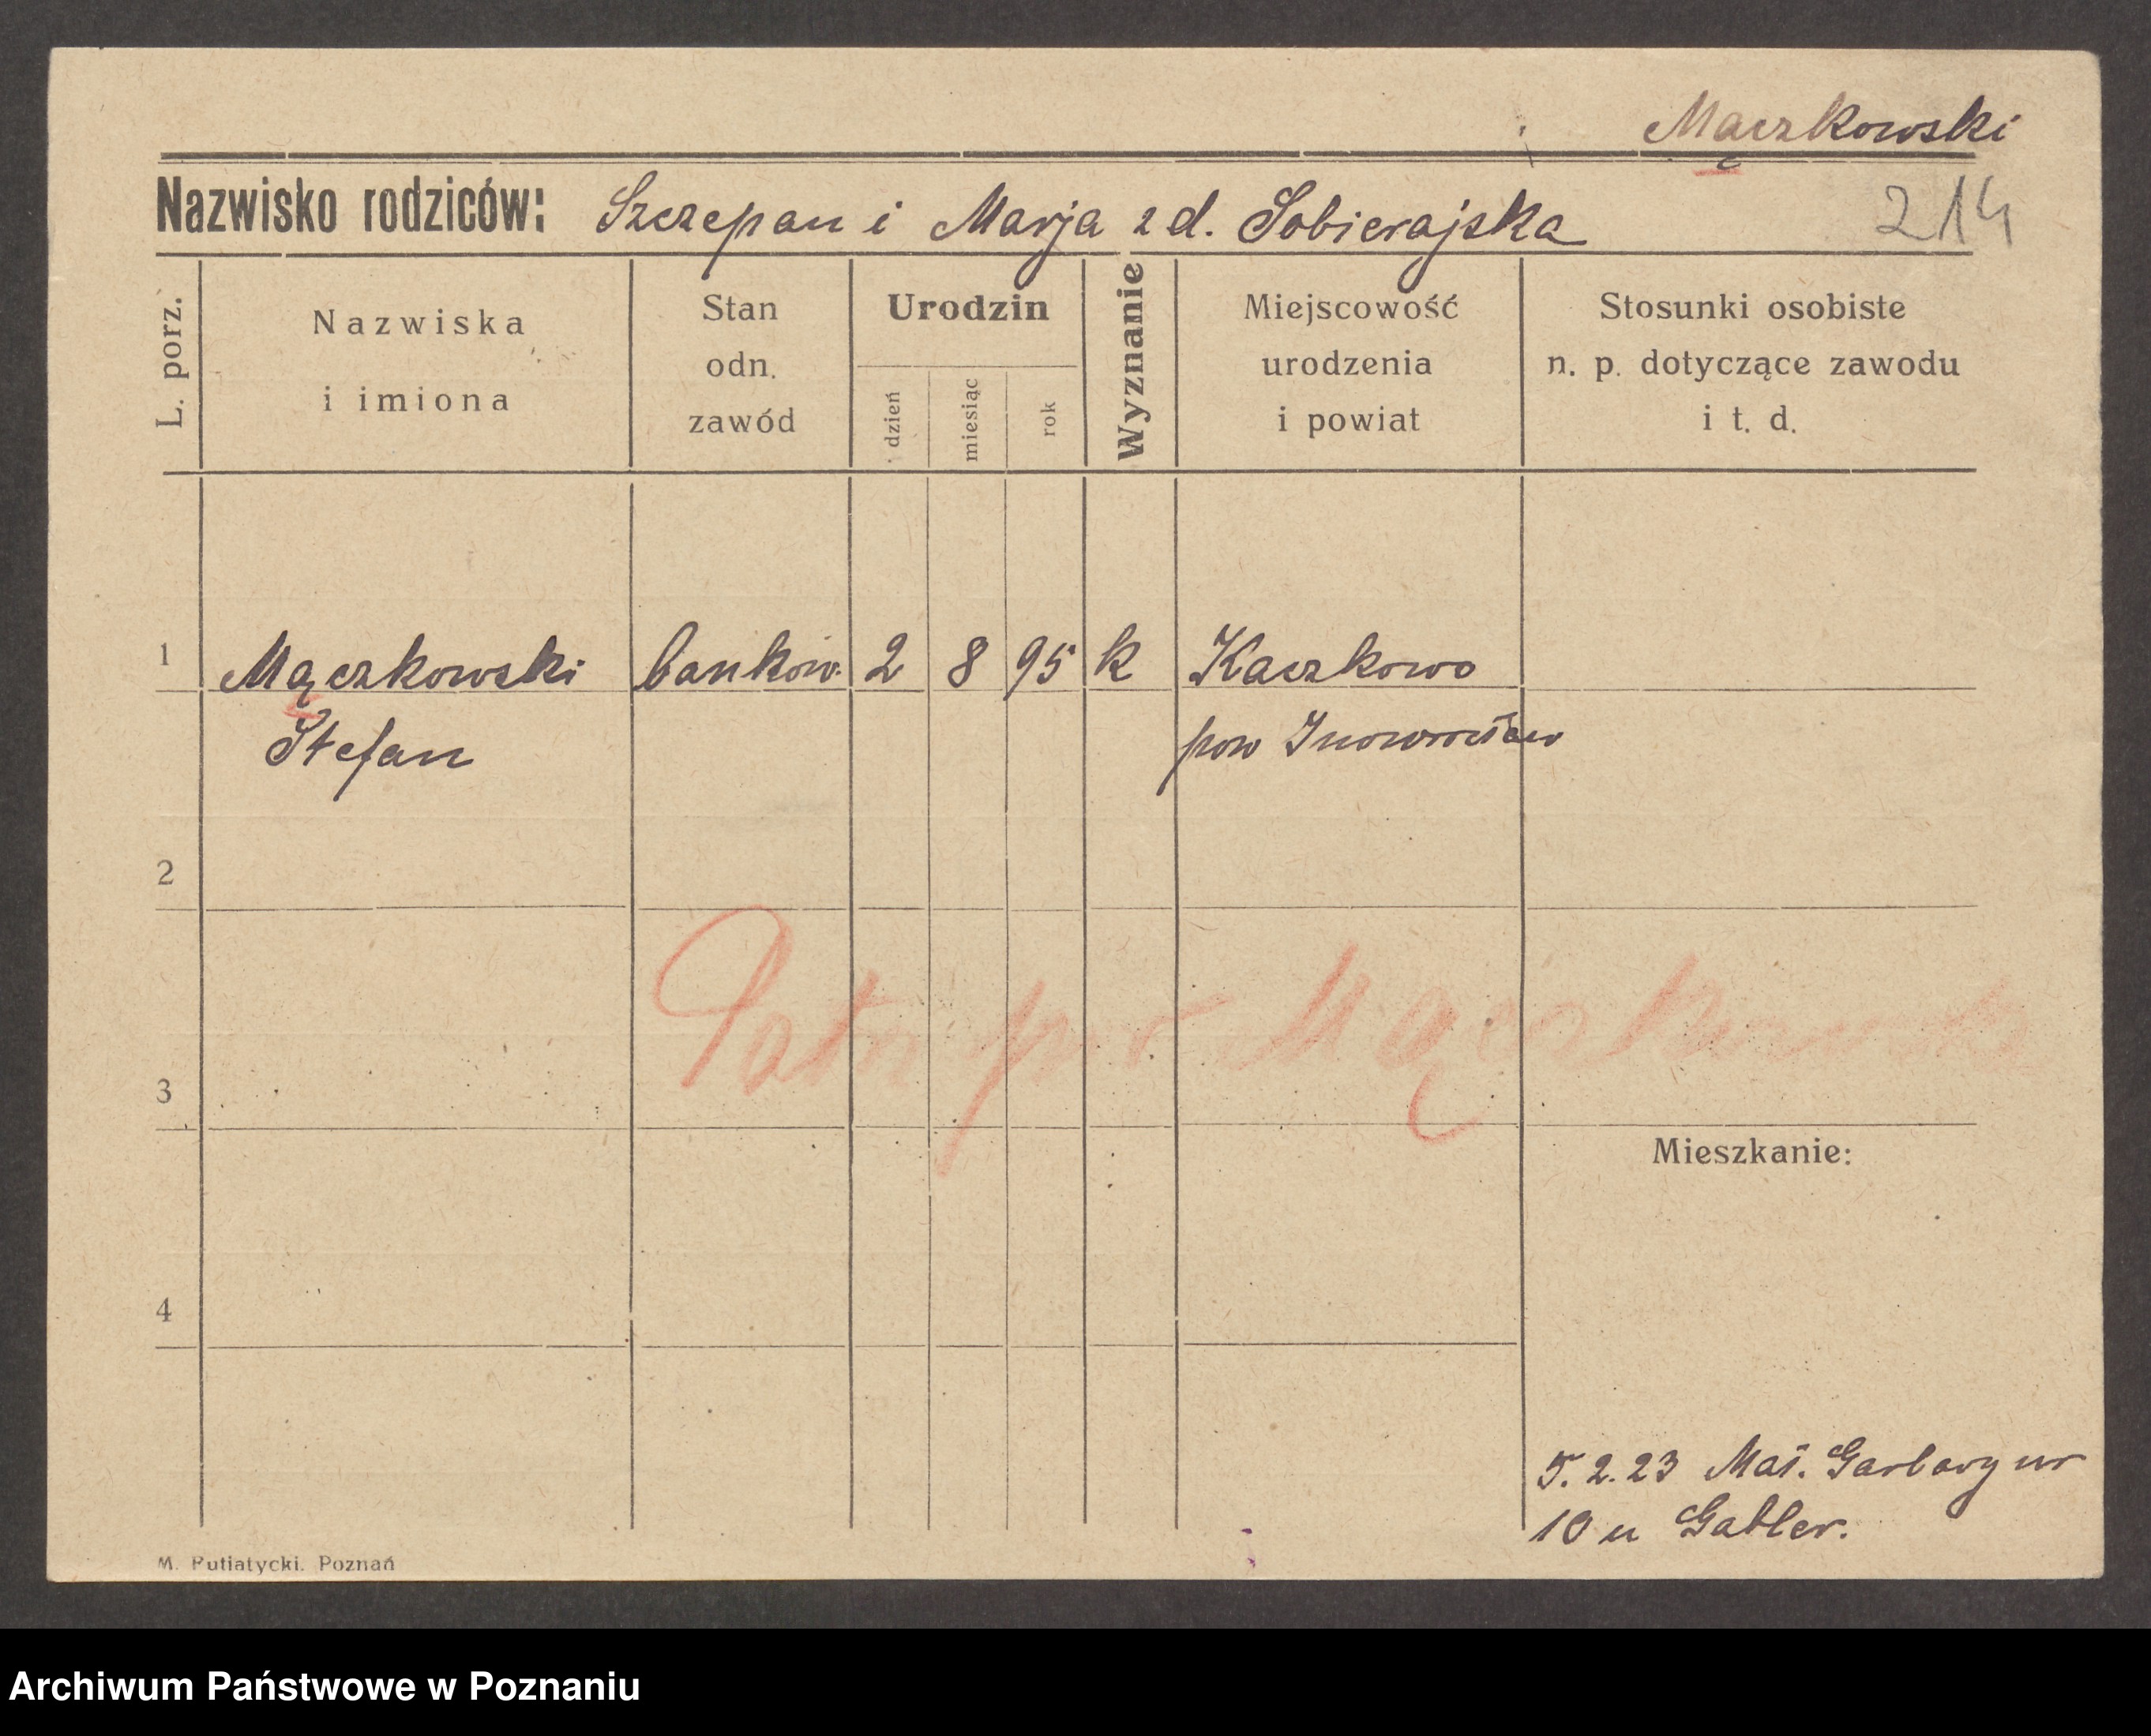 Mączkowski
Nazwisko rodziców: Szczepan i Marja z d. Sobierajska
214
L. porz.
Nazwiska
i imiona
Stan
odn.
zawód
Urodzin
dzień
miesiąc
rok
Wyznanie
Miejscowość
urodzenia
i powiat
Stosunki osobiste
n. p. dotyczące zawodu
i t. d.
1 Mączkowski bankow. 2 8 95 k Kaczkowo
Stefan pow Inowrocław
2
Mączkowski
3
Mieszkanie:
4
5.2.23 Mał. Garbary nr
10 u Gabler.
M. Putiatycki. Poznań
Archiwum Państwowe w Poznaniu